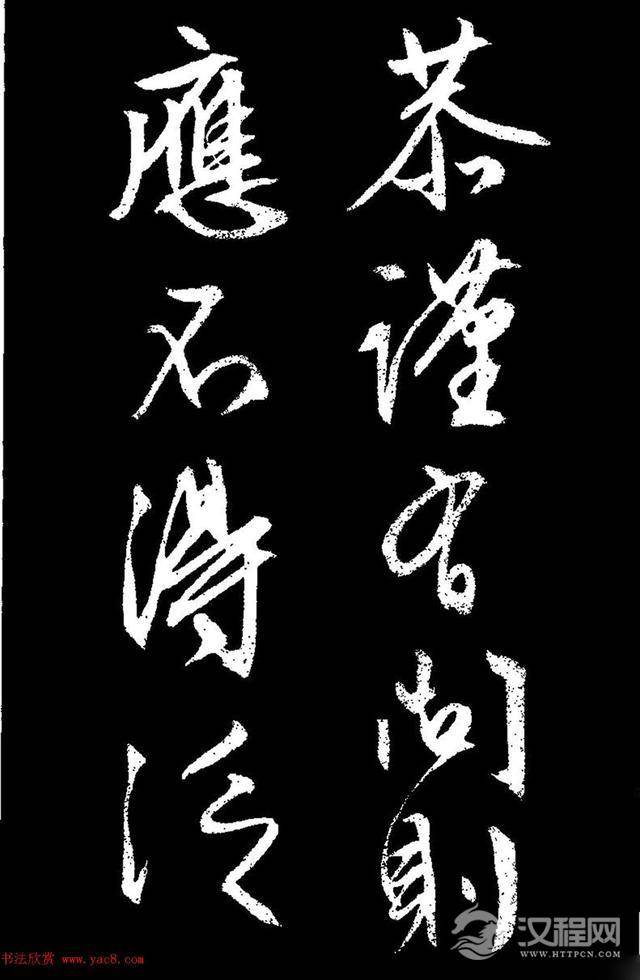 恭谨有问则
應不得泛
书法欣赏 www.yac8.com
汉程网
WWW.HTTPCN.COM